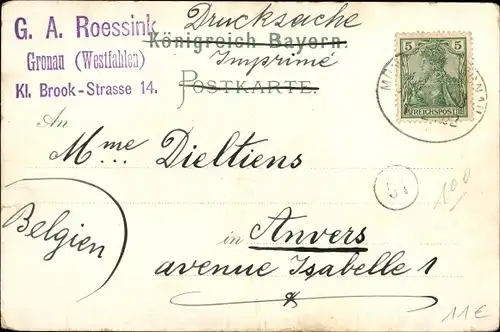 G. A. Roessink
Gronau (Westfahlen)
Kl. Brook-Strasse 14.
Drucksache
Königreich Bayern.
Imprimé
POSTKARTE.
5
REICHSPOST
An
Mme Dieltiens
Belgien
in Anvers
avenue Isabelle 1
100
11€